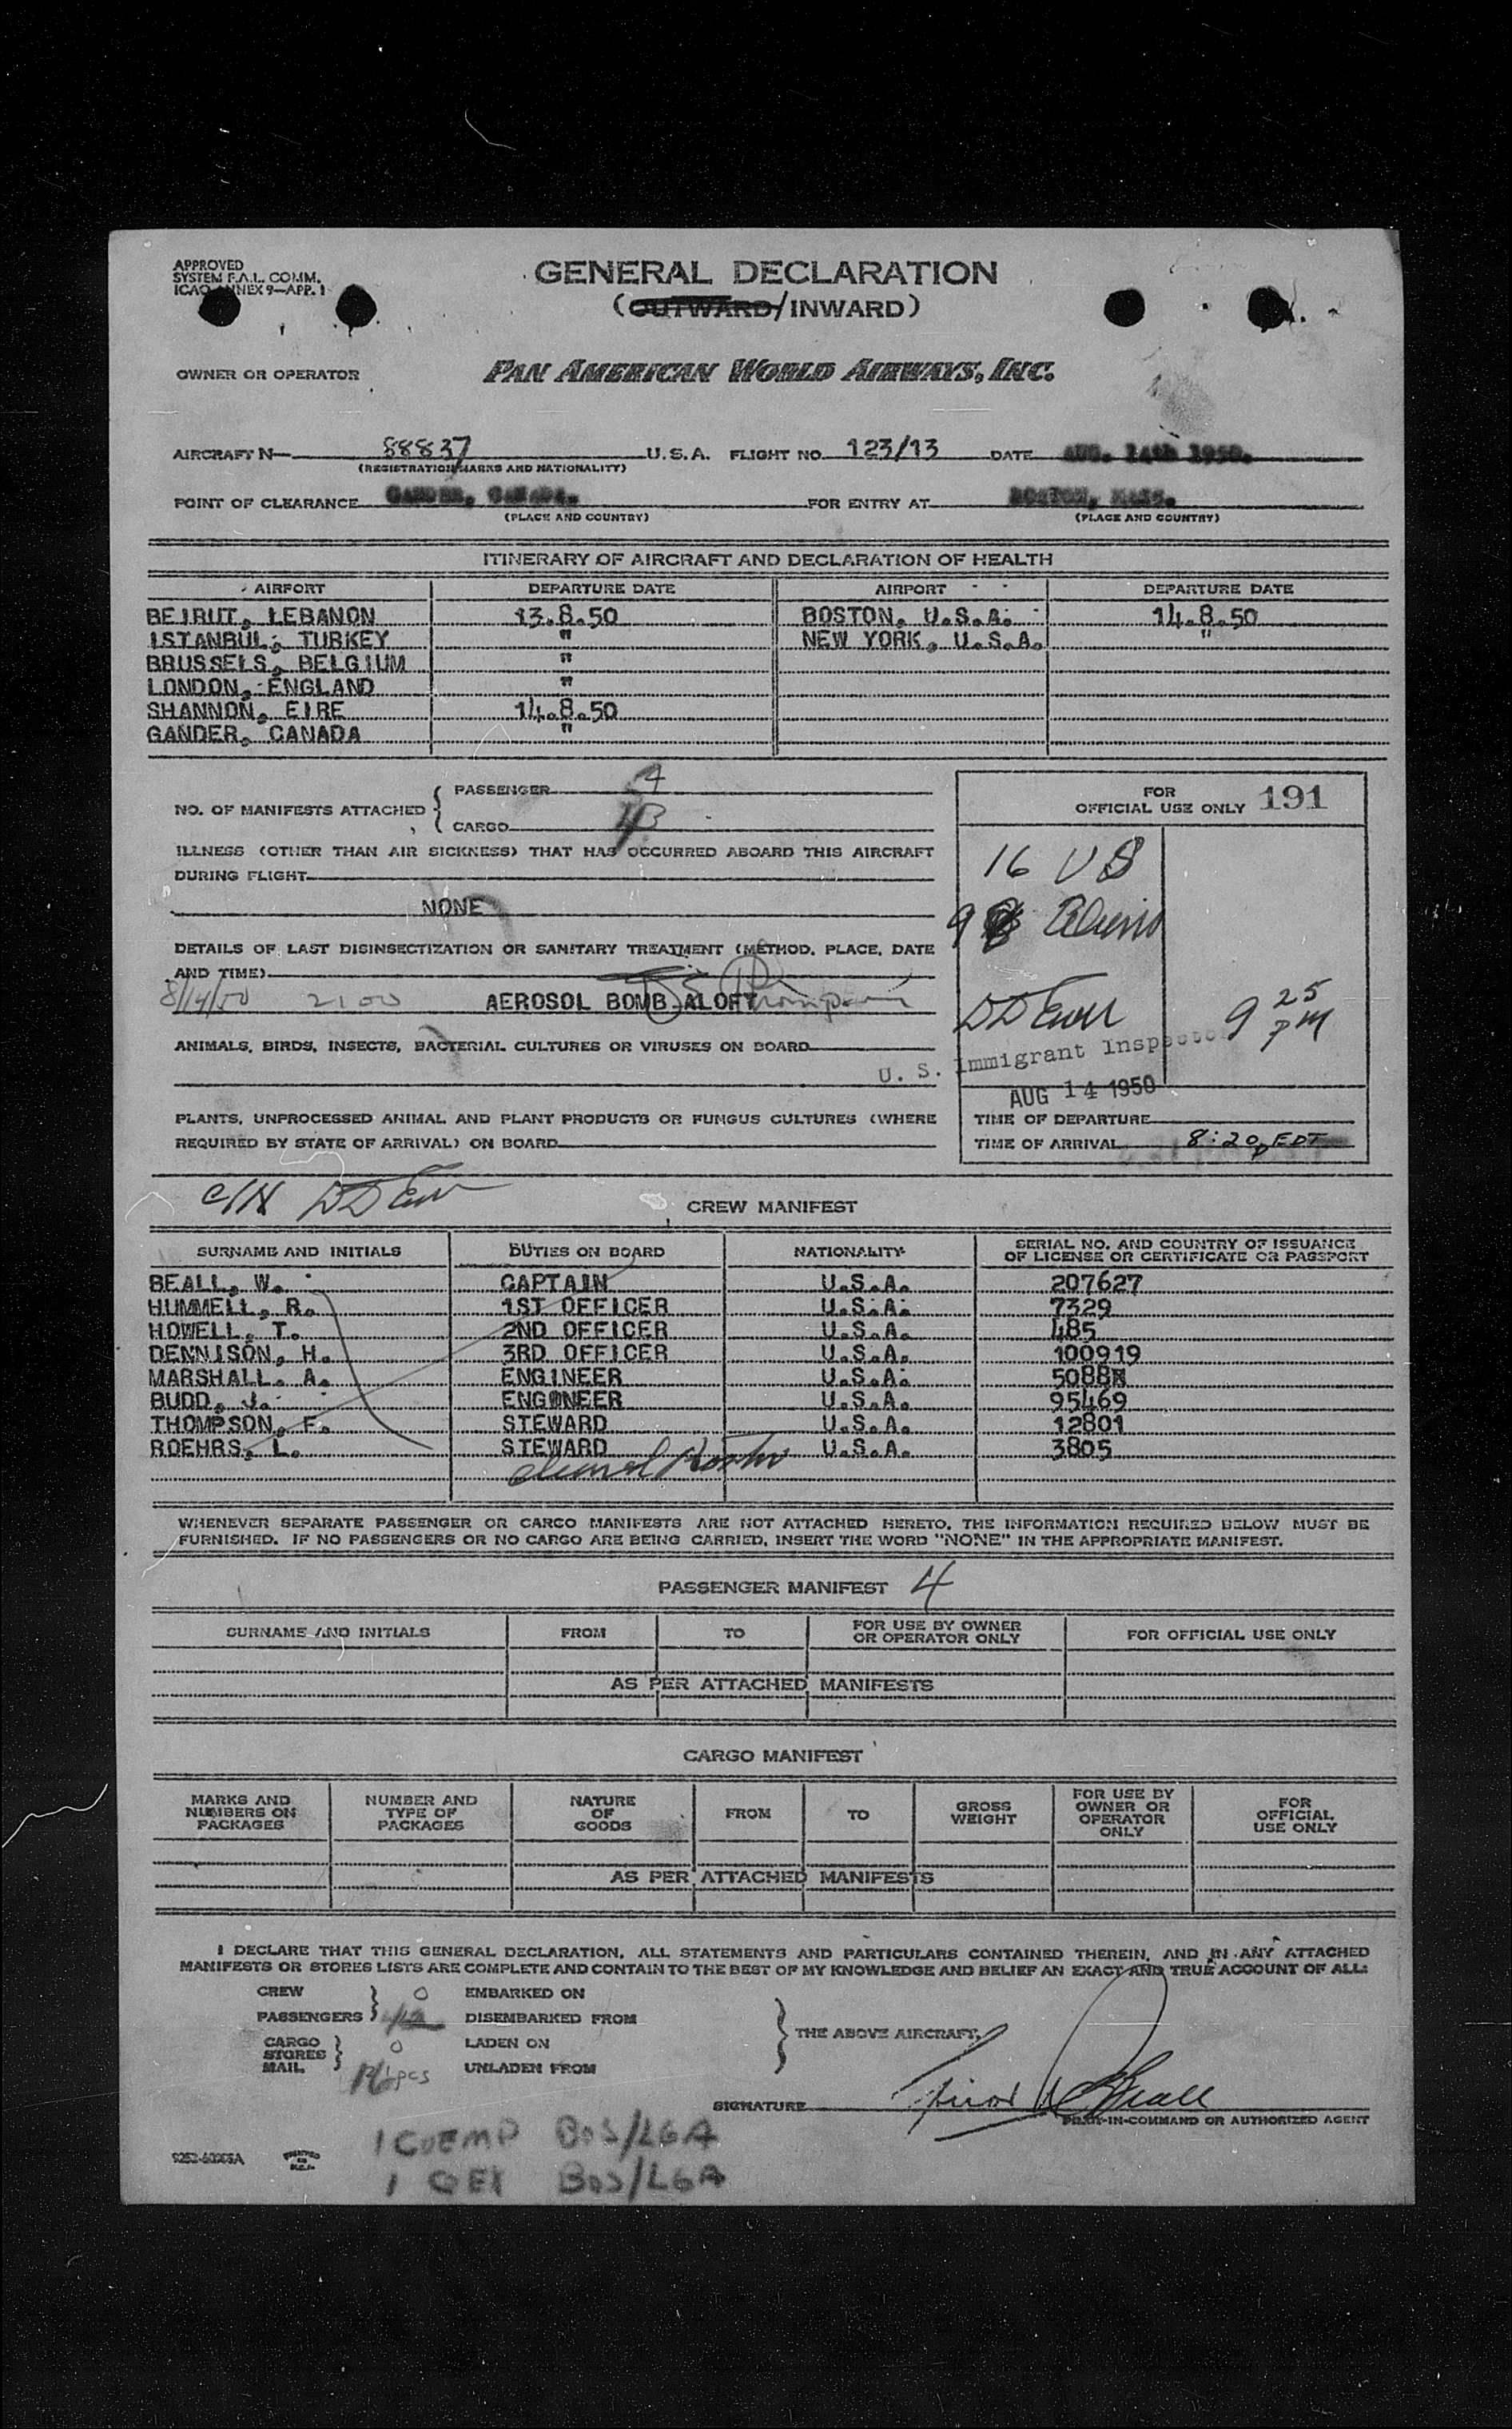 APPROVED
SYSTEM F.A.L. COMM.
ICAO ANNEX 9—APP. 1
GENERAL DECLARATION
(OUTWARD/INWARD)
OWNER OR OPERATOR PAN AMERICAN WORLD AIRWAYS, INC.
AIRCRAFT N— 88837 U.S.A. FLIGHT NO. 123/13 DATE AUG. 14th 1950.
(REGISTRATION MARKS AND NATIONALITY)
POINT OF CLEARANCE GANDER, CANADA. FOR ENTRY AT BOSTON, MASS.
(PLACE AND COUNTRY) (PLACE AND COUNTRY)
ITINERARY OF AIRCRAFT AND DECLARATION OF HEALTH
AIRPORT DEPARTURE DATE AIRPORT DEPARTURE DATE
BEIRUT, LEBANON 13.8.50 BOSTON, U.S.A. 14.8.50
ISTANBUL, TURKEY " NEW YORK, U.S.A. "
BRUSSELS, BELGIUM "
LONDON, ENGLAND "
SHANNON, EIRE 14.8.50
GANDER, CANADA "
NO. OF MANIFESTS ATTACHED
PASSENGER 4
CARGO
FOR
OFFICIAL USE ONLY 191
ILLNESS (OTHER THAN AIR SICKNESS) THAT HAS OCCURRED ABOARD THIS AIRCRAFT
DURING FLIGHT
NONE
16 US
9
DETAILS OF LAST DISINSECTIZATION OR SANITARY TREATMENT (METHOD, PLACE, DATE
AND TIME)
8/14/50 2100 AEROSOL BOMB ALOFT Thompson
9 25 PM
U. S. Immigrant Inspector
AUG 14 1950
ANIMALS, BIRDS, INSECTS, BACTERIAL CULTURES OR VIRUSES ON BOARD
PLANTS, UNPROCESSED ANIMAL AND PLANT PRODUCTS OR FUNGUS CULTURES (WHERE
REQUIRED BY STATE OF ARRIVAL) ON BOARD
TIME OF DEPARTURE
TIME OF ARRIVAL 8:20p EDT
CREW MANIFEST
SURNAME AND INITIALS DUTIES ON BOARD NATIONALITY SERIAL NO. AND COUNTRY OF ISSUANCE
OF LICENSE OR CERTIFICATE OR PASSPORT
BEALL, W. CAPTAIN U.S.A. 207627
HUMMELL, R. 1ST OFFICER U.S.A. 7329
HOWELL, T. 2ND OFFICER U.S.A. 485
DENNISON, H. 3RD OFFICER U.S.A. 100919
MARSHALL, A. ENGINEER U.S.A. 5088
BUDD, J. ENGONEER U.S.A. 95469
THOMPSON, F. STEWARD U.S.A. 12801
ROEHRS, L. STEWARD U.S.A. 3805
WHENEVER SEPARATE PASSENGER OR CARGO MANIFESTS ARE NOT ATTACHED HERETO, THE INFORMATION REQUIRED BELOW MUST BE
FURNISHED. IF NO PASSENGERS OR NO CARGO ARE BEING CARRIED, INSERT THE WORD "NONE" IN THE APPROPRIATE MANIFEST.
PASSENGER MANIFEST 4
SURNAME AND INITIALS FROM TO FOR USE BY OWNER
OR OPERATOR ONLY FOR OFFICIAL USE ONLY
AS PER ATTACHED MANIFESTS
CARGO MANIFEST
MARKS AND
NUMBERS ON
PACKAGES
NUMBER AND
TYPE OF
PACKAGES
NATURE
OF
GOODS
FROM
TO
GROSS
WEIGHT
FOR USE BY
OWNER OR
OPERATOR
ONLY
FOR
OFFICIAL
USE ONLY
AS PER ATTACHED MANIFESTS
I DECLARE THAT THIS GENERAL DECLARATION, ALL STATEMENTS AND PARTICULARS CONTAINED THEREIN, AND IN ANY ATTACHED
MANIFESTS OR STORES LISTS ARE COMPLETE AND CONTAIN TO THE BEST OF MY KNOWLEDGE AND BELIEF AN EXACT AND TRUE ACCOUNT OF ALL:
CREW 0 EMBARKED ON
PASSENGERS DISEMBARKED FROM
THE ABOVE AIRCRAFT,
CARGO 0 LADEN ON
STORES
MAIL pcs UNLADEN FROM
SIGNATURE W Beall
PILOT-IN-COMMAND OR AUTHORIZED AGENT
1 COEMP BOS/LGA
1 BOS/LGA
PRINTED
IN
U.S.A.